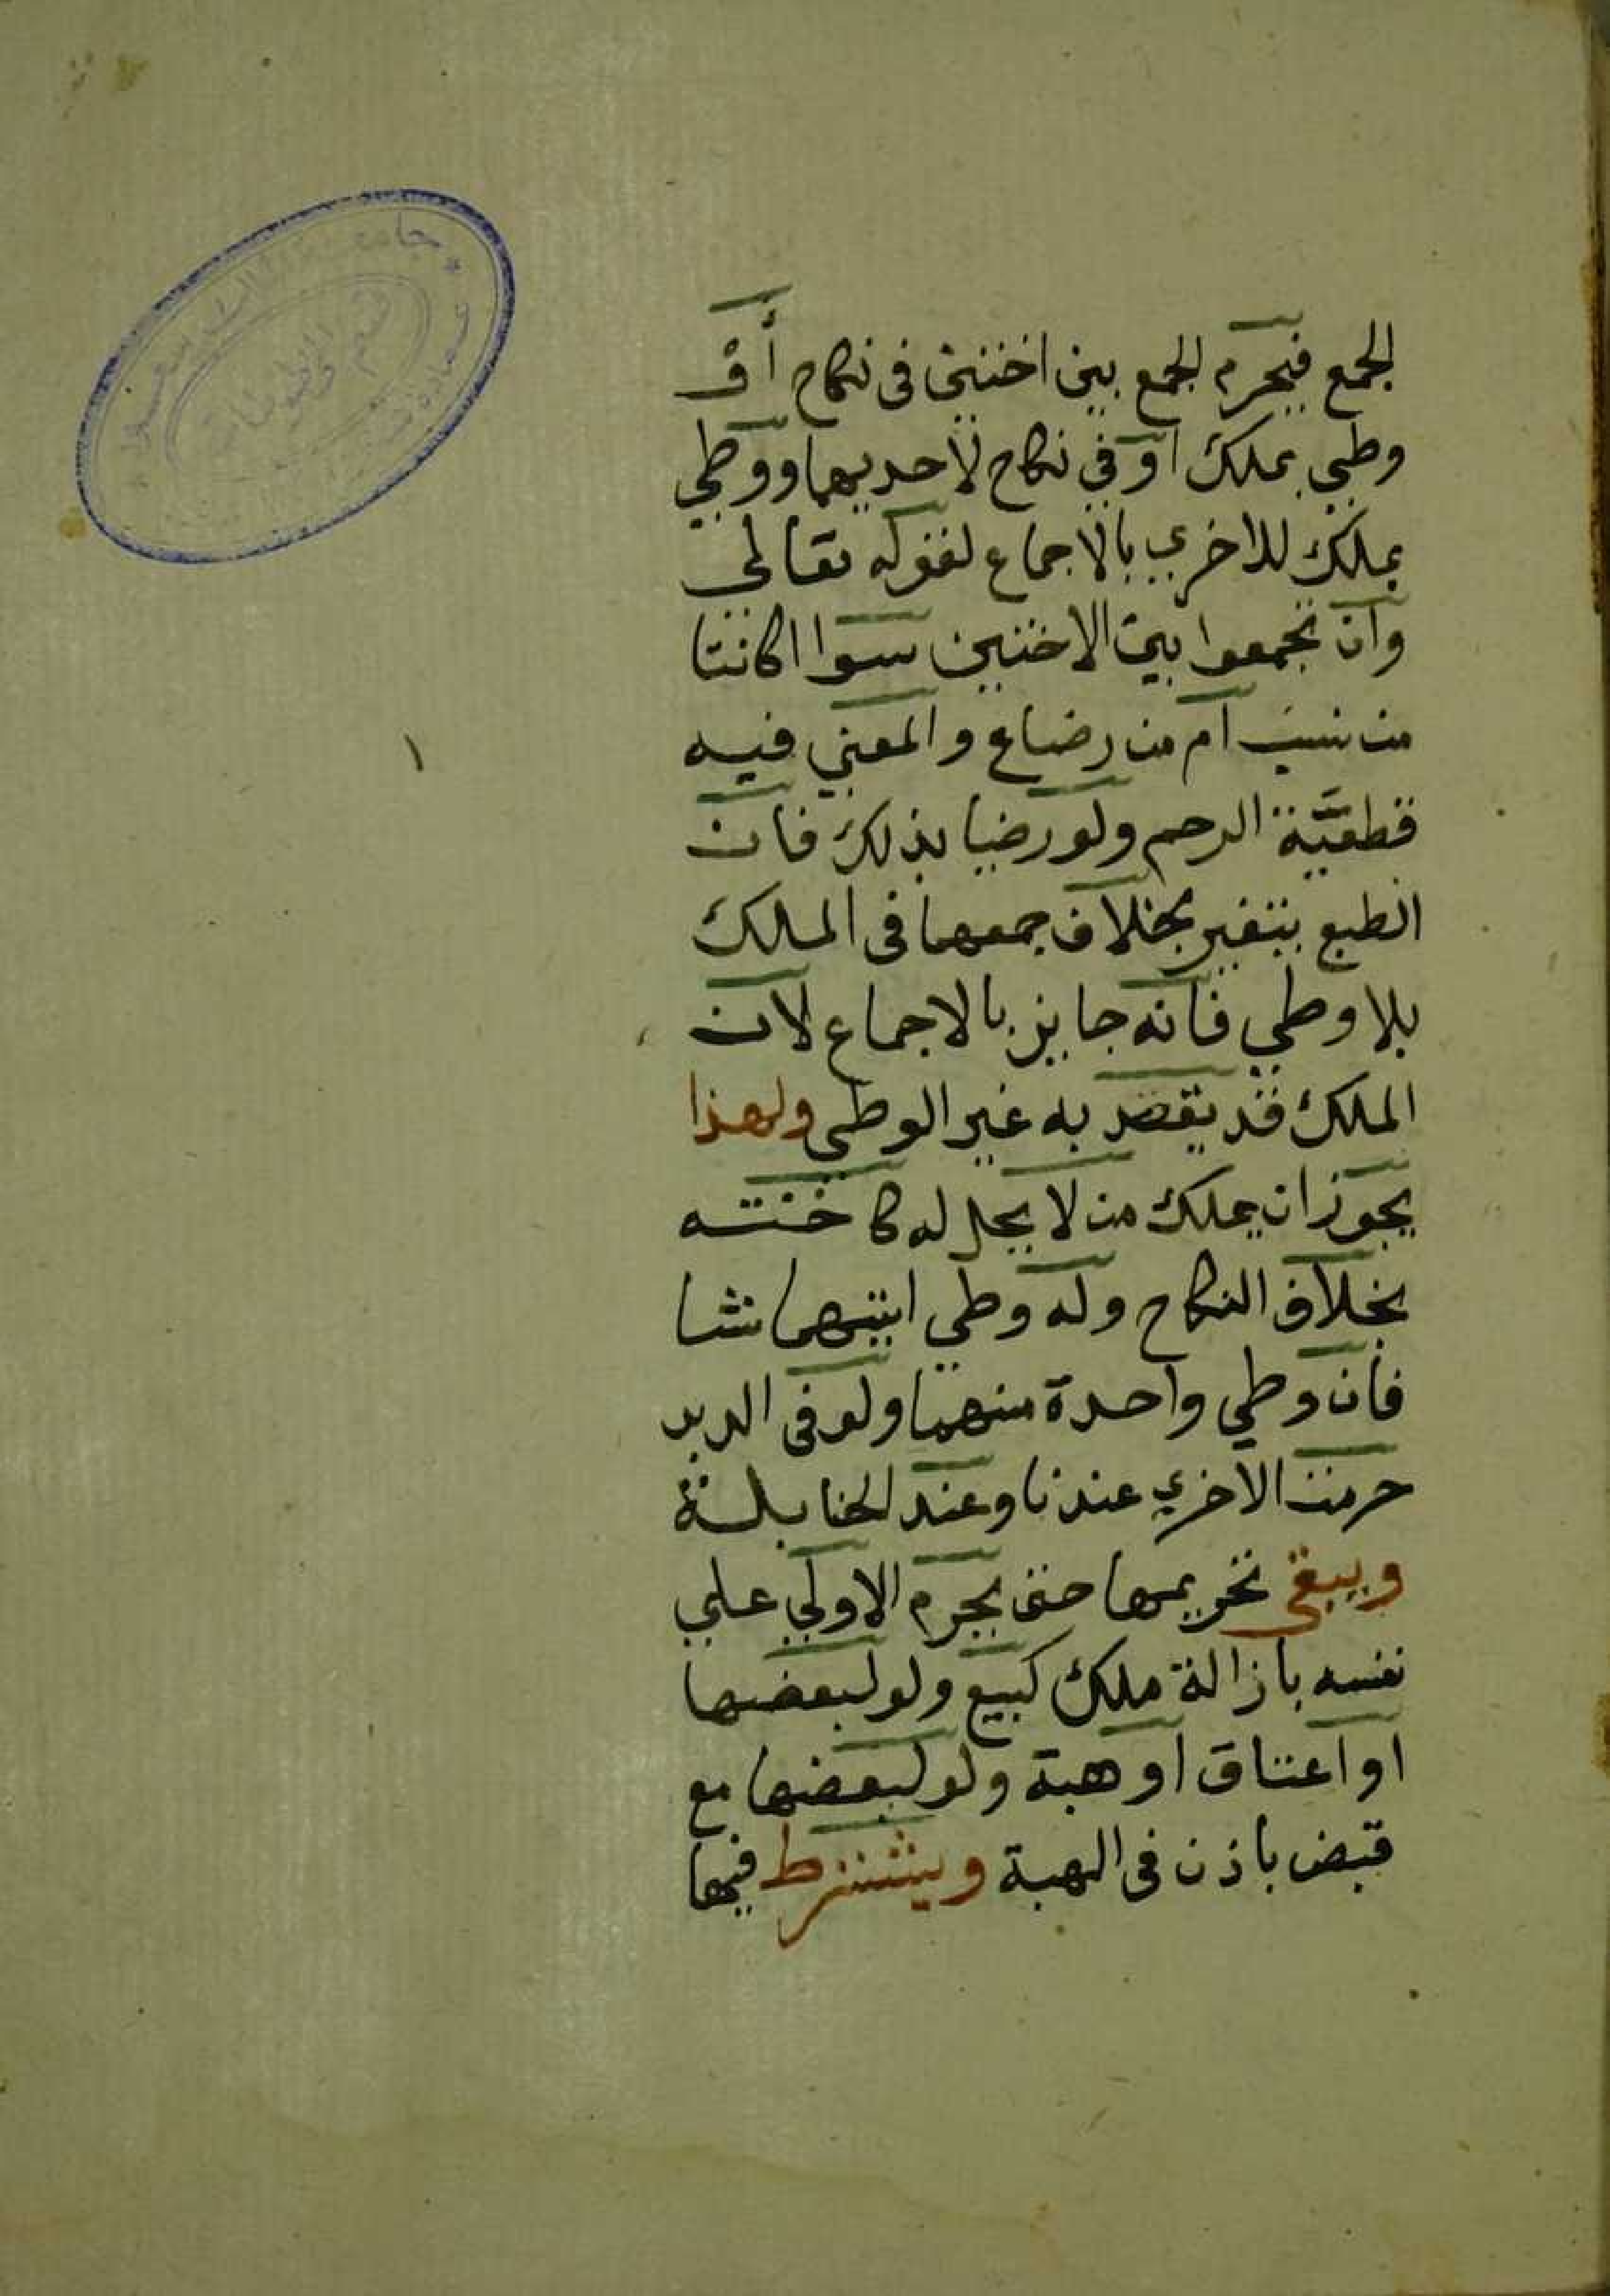 الجمع فيحرم الجمع بين اختين في نكاح أو
وطي بملك او في نكاح لاحديهما ووطي
بملك للاخري بالاجماع لقوله تعالى
وان تجمعوا بين الاختين سوا اكانتا
من نسب ام من رضاع والمعني فيه
قطعيّة الرحم ولو رضيا بذلك فان
الطبع يتغير بخلاف جمعهما في الملك
بلا وطي فانه جايز بالاجماع لان
الملك قد يقصد به غير الوطي ولهذا
يجوز ان يملك من لا يحل له كاخته
بخلاف النكاح وله وطي ايتهما شا
فان وطي واحدة منهما ولو في الدبر
حرمت الاخري عندنا وعند الحنابلة
ويبقى تحريمها حتى يحرم الاولي علي
نفسه بازالة ملك كبيع ولو لبعضها
او اعتاق او هبة ولو لبعضها مع
قبض باذن في الهبة ويشترط فيها
١
جامعة الملك سعود
عمادة
قسم المخطوطات